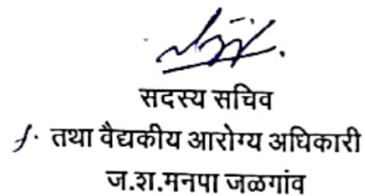 सदस्य सचिव
तथा वैद्यकीय आरोग्य अधिकारी
ज.श.मनपा जळगांव